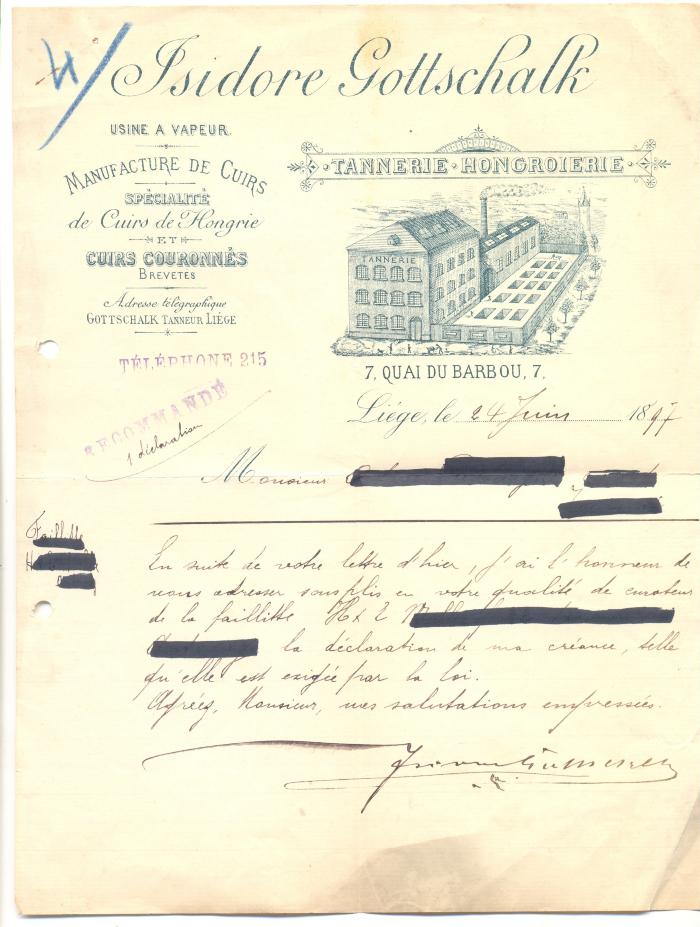 4/
Isidore Gottschalk
USINE A VAPEUR.
MANUFACTURE DE CUIRS
SPÉCIALITÉ
de Cuirs de Hongrie
ET
CUIRS COURONNÉS
BREVETÉS
Adresse télégraphique
GOTTSCHALK TANNEUR LIÉGE
TÉLÉPHONE 215
RECOMMANDÉ
1 déclaration
TANNERIE · HONGROIERIE
TANNERIE
7, QUAI DU BARBOU, 7.
Liége, le 24 Juin 1897
Monsieur
Faillite
En suite de votre lettre d'hier, j'ai l'honneur de
vous adresser sous plis en votre qualité de curateur
de la faillitte H & L
la déclaration de ma créance, telle
qu'elle est exigée par la loi.
Agréez, Monsieur, mes salutations empressées.